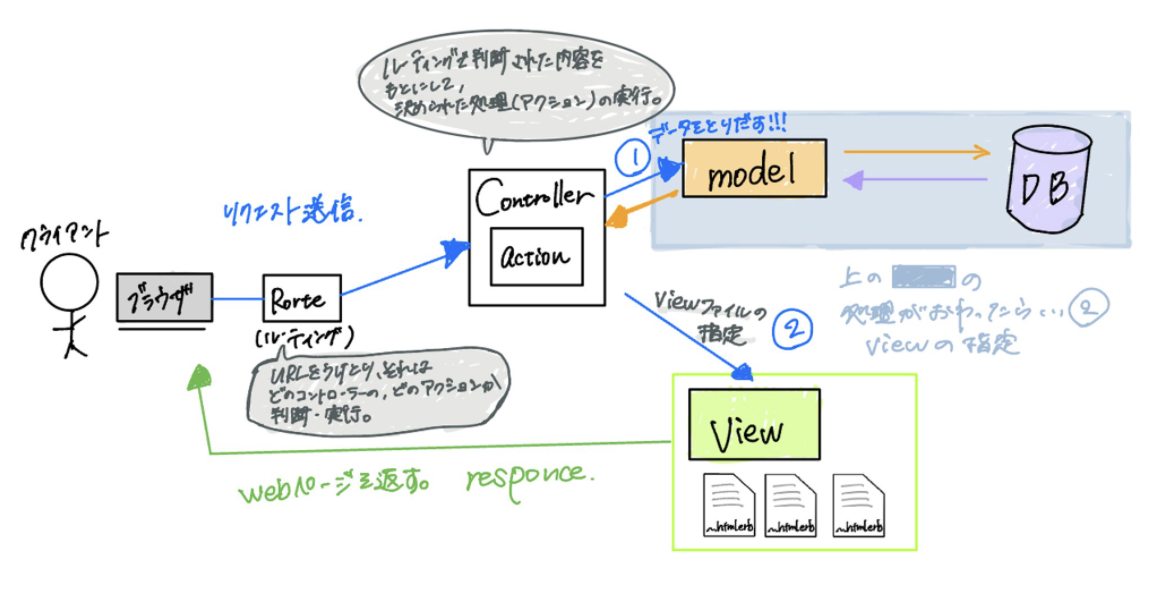 ルーティングで判断された内容を
もとにして、
決められた処理(アクション)の実行。
データをとりだす!!!
①
model
DB
Controller
Action
リクエスト送信.
クライアント
ブラウザ
Rorte
(ルーティング)
URLをうけとり、それは
どのコントローラーの、どのアクションか
判断・実行。
Viewファイルの
指定
②
上の の
処理がおわったらい ②
Viewの指定
View
~.htmlerb
~.htmlerb
~.htmlerb
webページを返す。 responce.